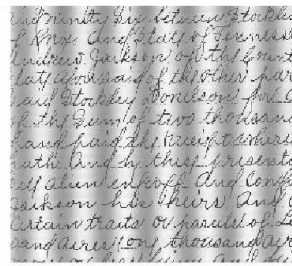 and ninety Six between Stockley
of Knox And State of Tennessee
Andrew Jackson of the Count
State aforesaid of the other par
Said Stockley Donelson for a
of the Sum of two thousand
hand paid the Receipt whereas
hath And by these presents
alien enfeoff And Conf
Jackson his heirs And a
Certain tracts or parcels of La
sand acres one thousand acr